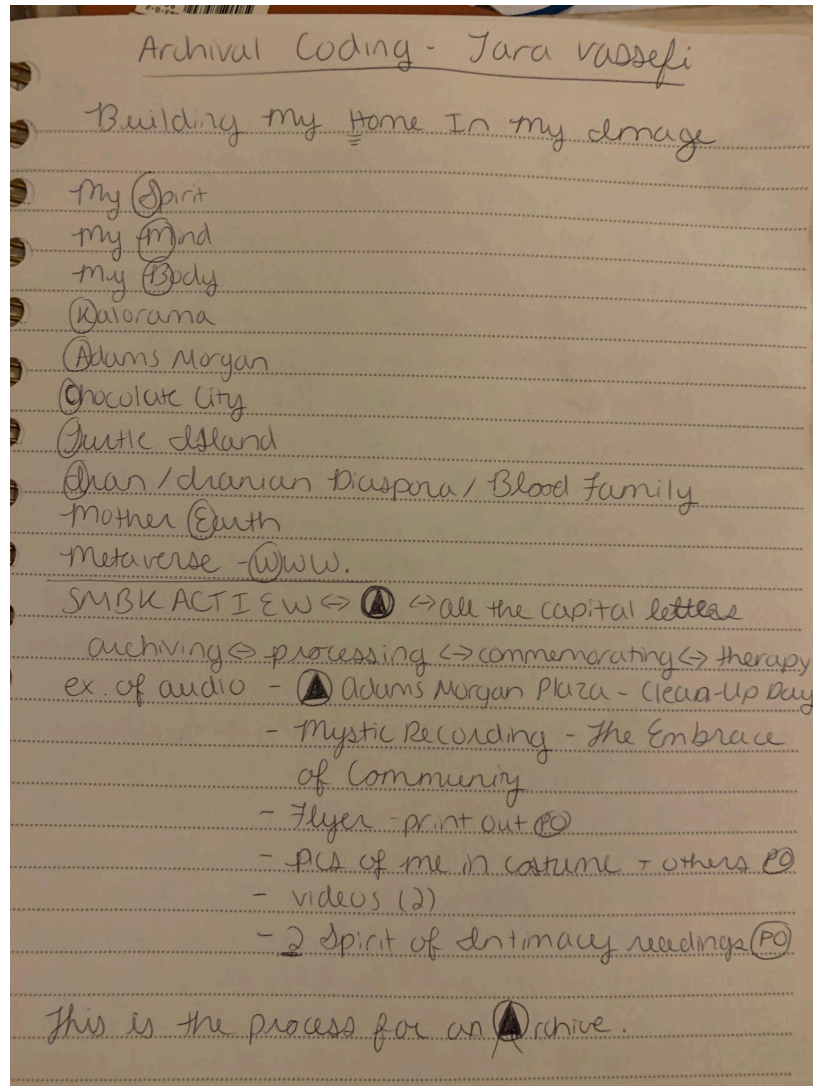 Archival Coding - Tara Vassefi
Building My Home In My Image
My Spirit
My Mind
My Body
Kalorama
Adams Morgan
Chocolate City
Turtle Island
Iran / Iranian Diaspora / Blood Family
Mother Earth
Metaverse - WWW.
SMBKACTIEW ↔ A ↔ all the capital letters
archiving ↔ processing ↔ commemorating ↔ therapy
ex. of audio - A Adams Morgan Plaza - Clean-Up Day
- Mystic Recording - The Embrace
of Community
- Flyer - print out PO
- pics of me in costume + others PO
- videos (2)
- 2 Spirit of Intimacy readings PO
This is the process for an Archive.